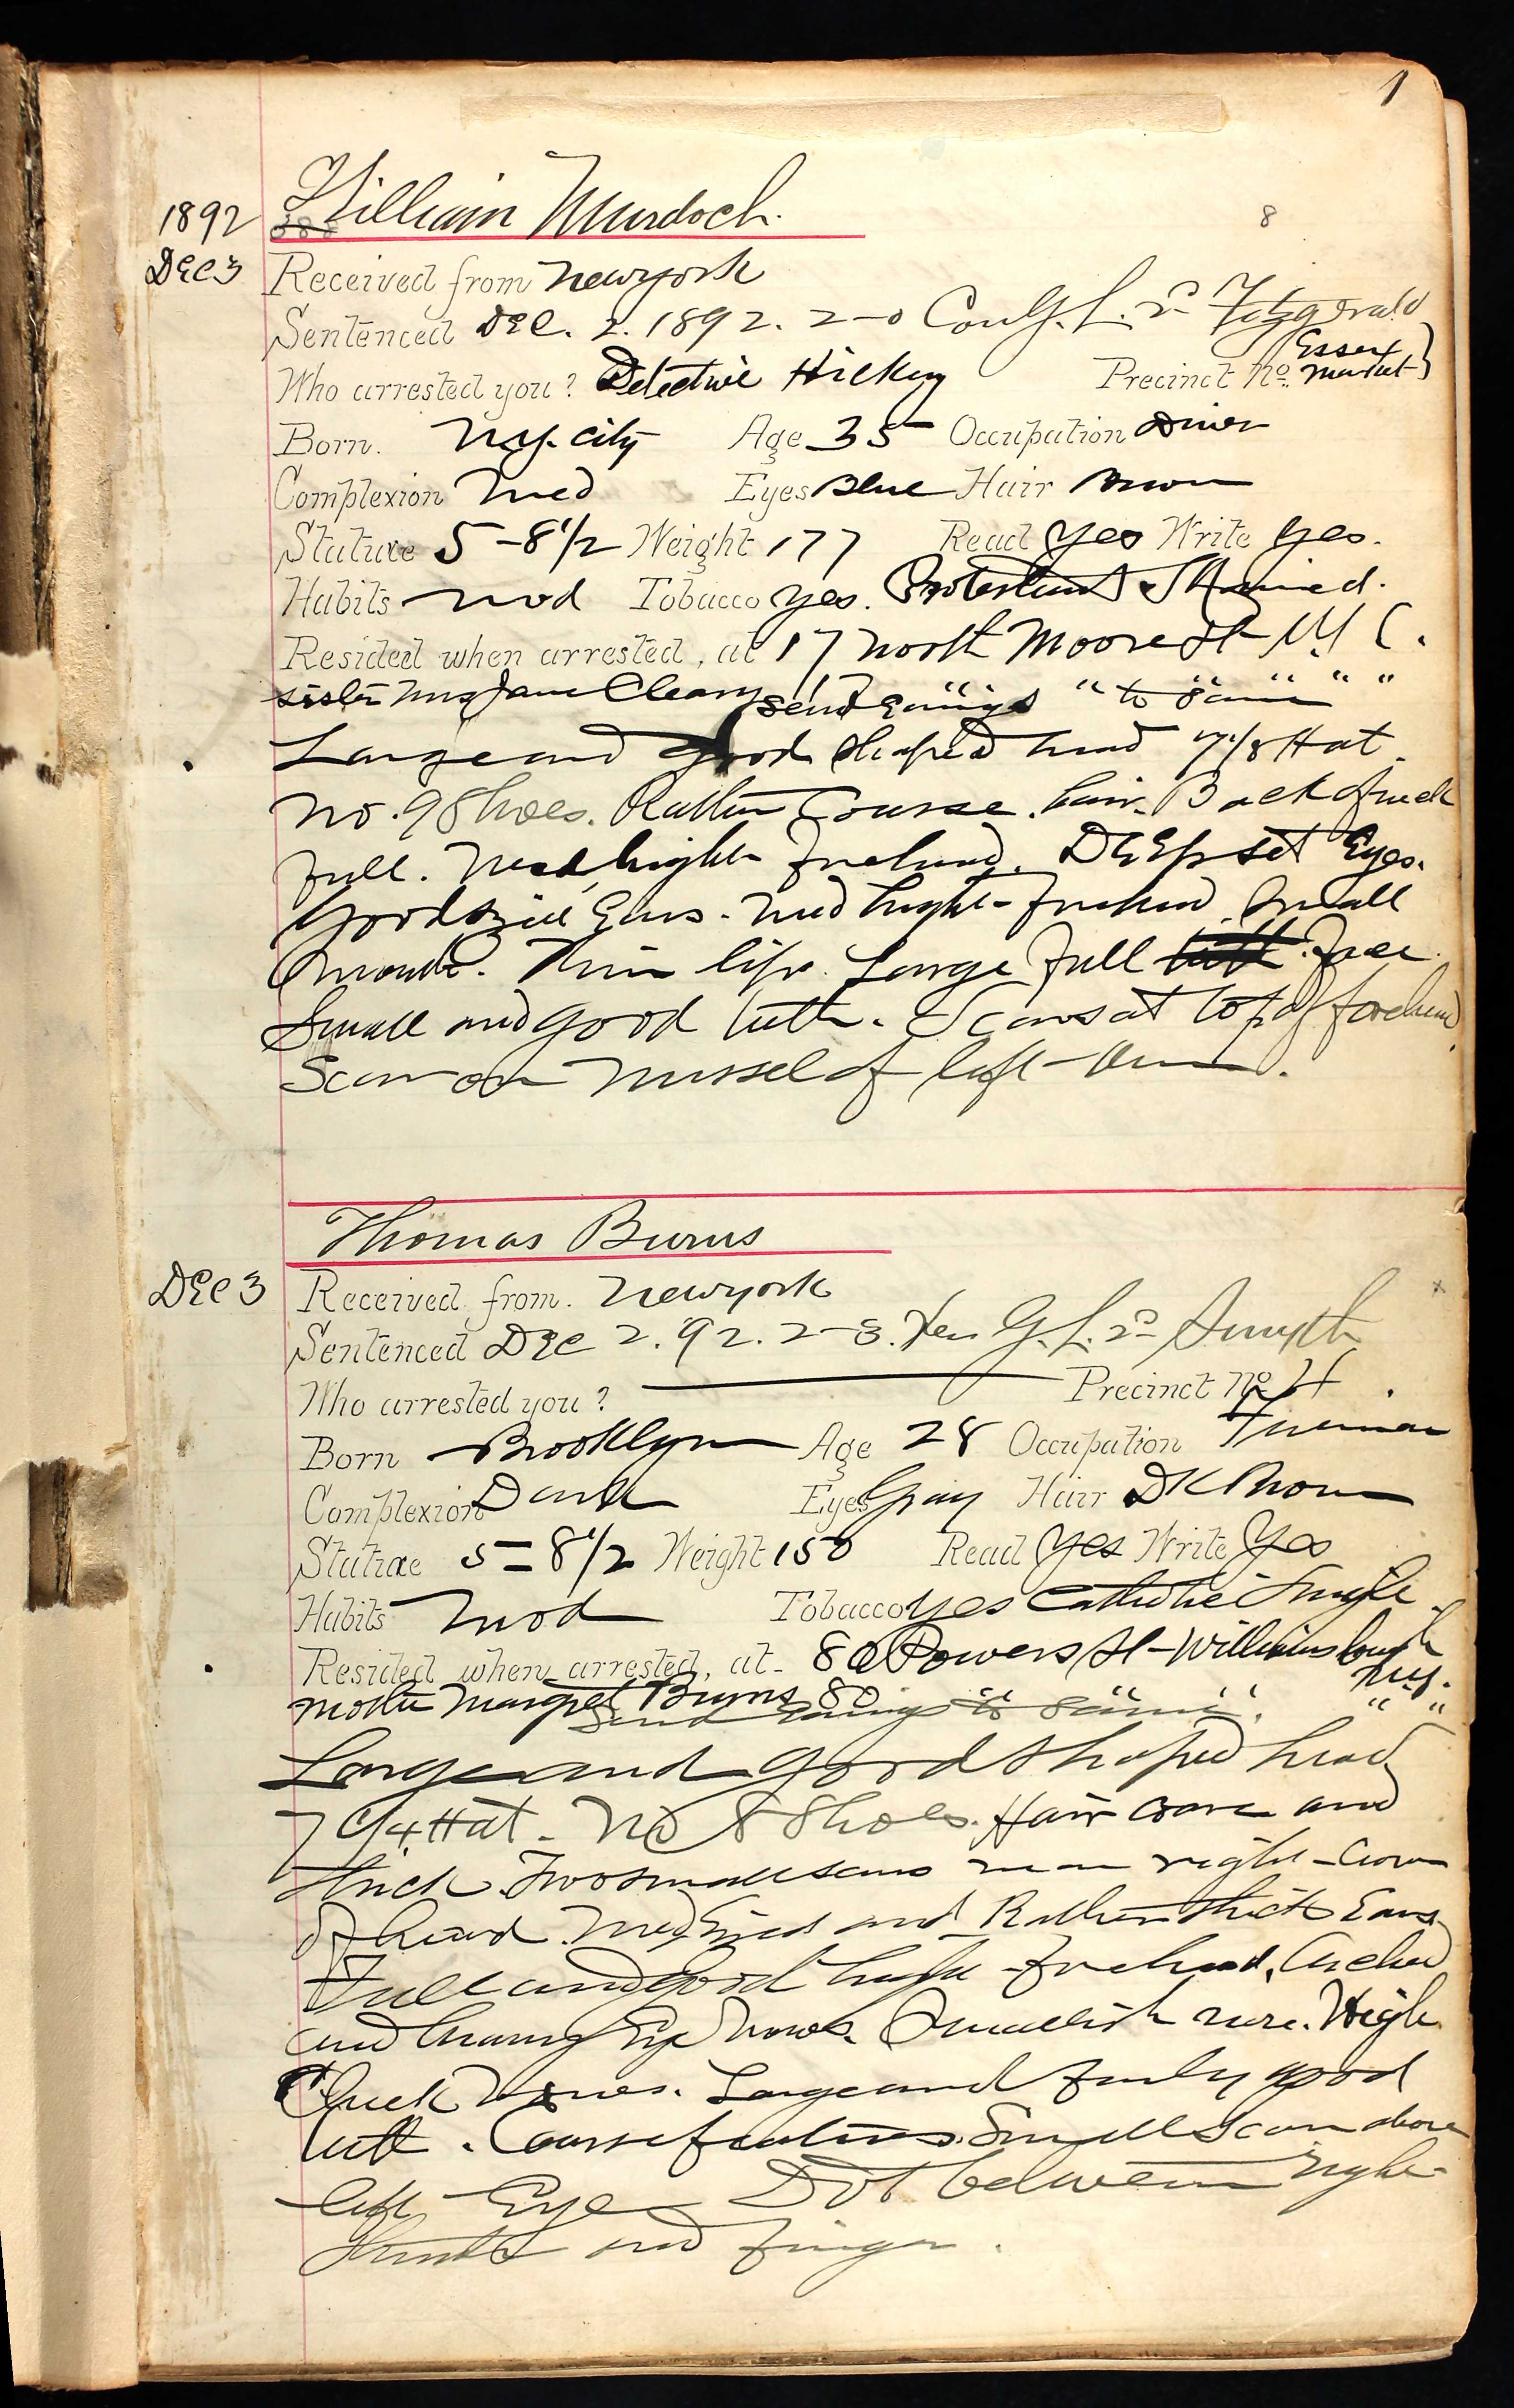 1
1892 William Murdoch.
8
Dec 3 Received from Newyork
Sentenced Dec. 2. 1892. 2-0 Con G. L. 2d Fitzgerald
Who arrested you? Detective Hickey Precinct No. Essex Market
Born. N.Y. City Age 35 Occupation Driver
Complexion Med Eyes Blue Hair Brown
Stature 5-8 1/2 Weight 177 Read Yes Write Yes.
Habits Mod Tobacco Yes. Protestant & Married.
Resided when arrested, at 17 North Moore St N.Y. C.
sister Mrs Jane Cleary 17 " " " " "
send Earnings to same
Large and good shaped head 7 1/8 Hat.
No. 9 Shoes. Rather Course hair. Back of neck
full. Med high forehead. Deep set Eyes.
Good size Ears. Med hight forehead. Small
mouth. Thin lips. Large full face.
Small and good teeth. Scars at top of forehead
Scar on mussel of left Arm.
Thomas Burns
Dec 3 Received from. Newyork
Sentenced Dec 2. 92. 2-3. G. L. 2d Smyth
Who arrested you? Precinct No 4.
Born Brooklyn Age 28 Occupation Fireman
Complexion Dark Eyes Gray Hair Dk Brown
Stature 5=8 1/2 Weight 150 Read Yes Write Yes
Habits Mod Tobacco Yes Catholic Single.
Resided when arrested, at 80 Powers St Williamsburgh
N.Y.
mother Margret Burns 80 " " " "
Send Earnings to same.
Large and good shaped head
7 1/4 Hat. No 8 Shoes. Hair coarse and
thick. Two small scars near right Crown
of head. Med sized and Rather thick Ears
Full and good hight forehead. Arched
and heavy Eye brows. Smallish nose. High
Cheek bones. Large and fairly good
teeth. Course features. Small Scar above
left Eye. Dot between right
thumb and finger.